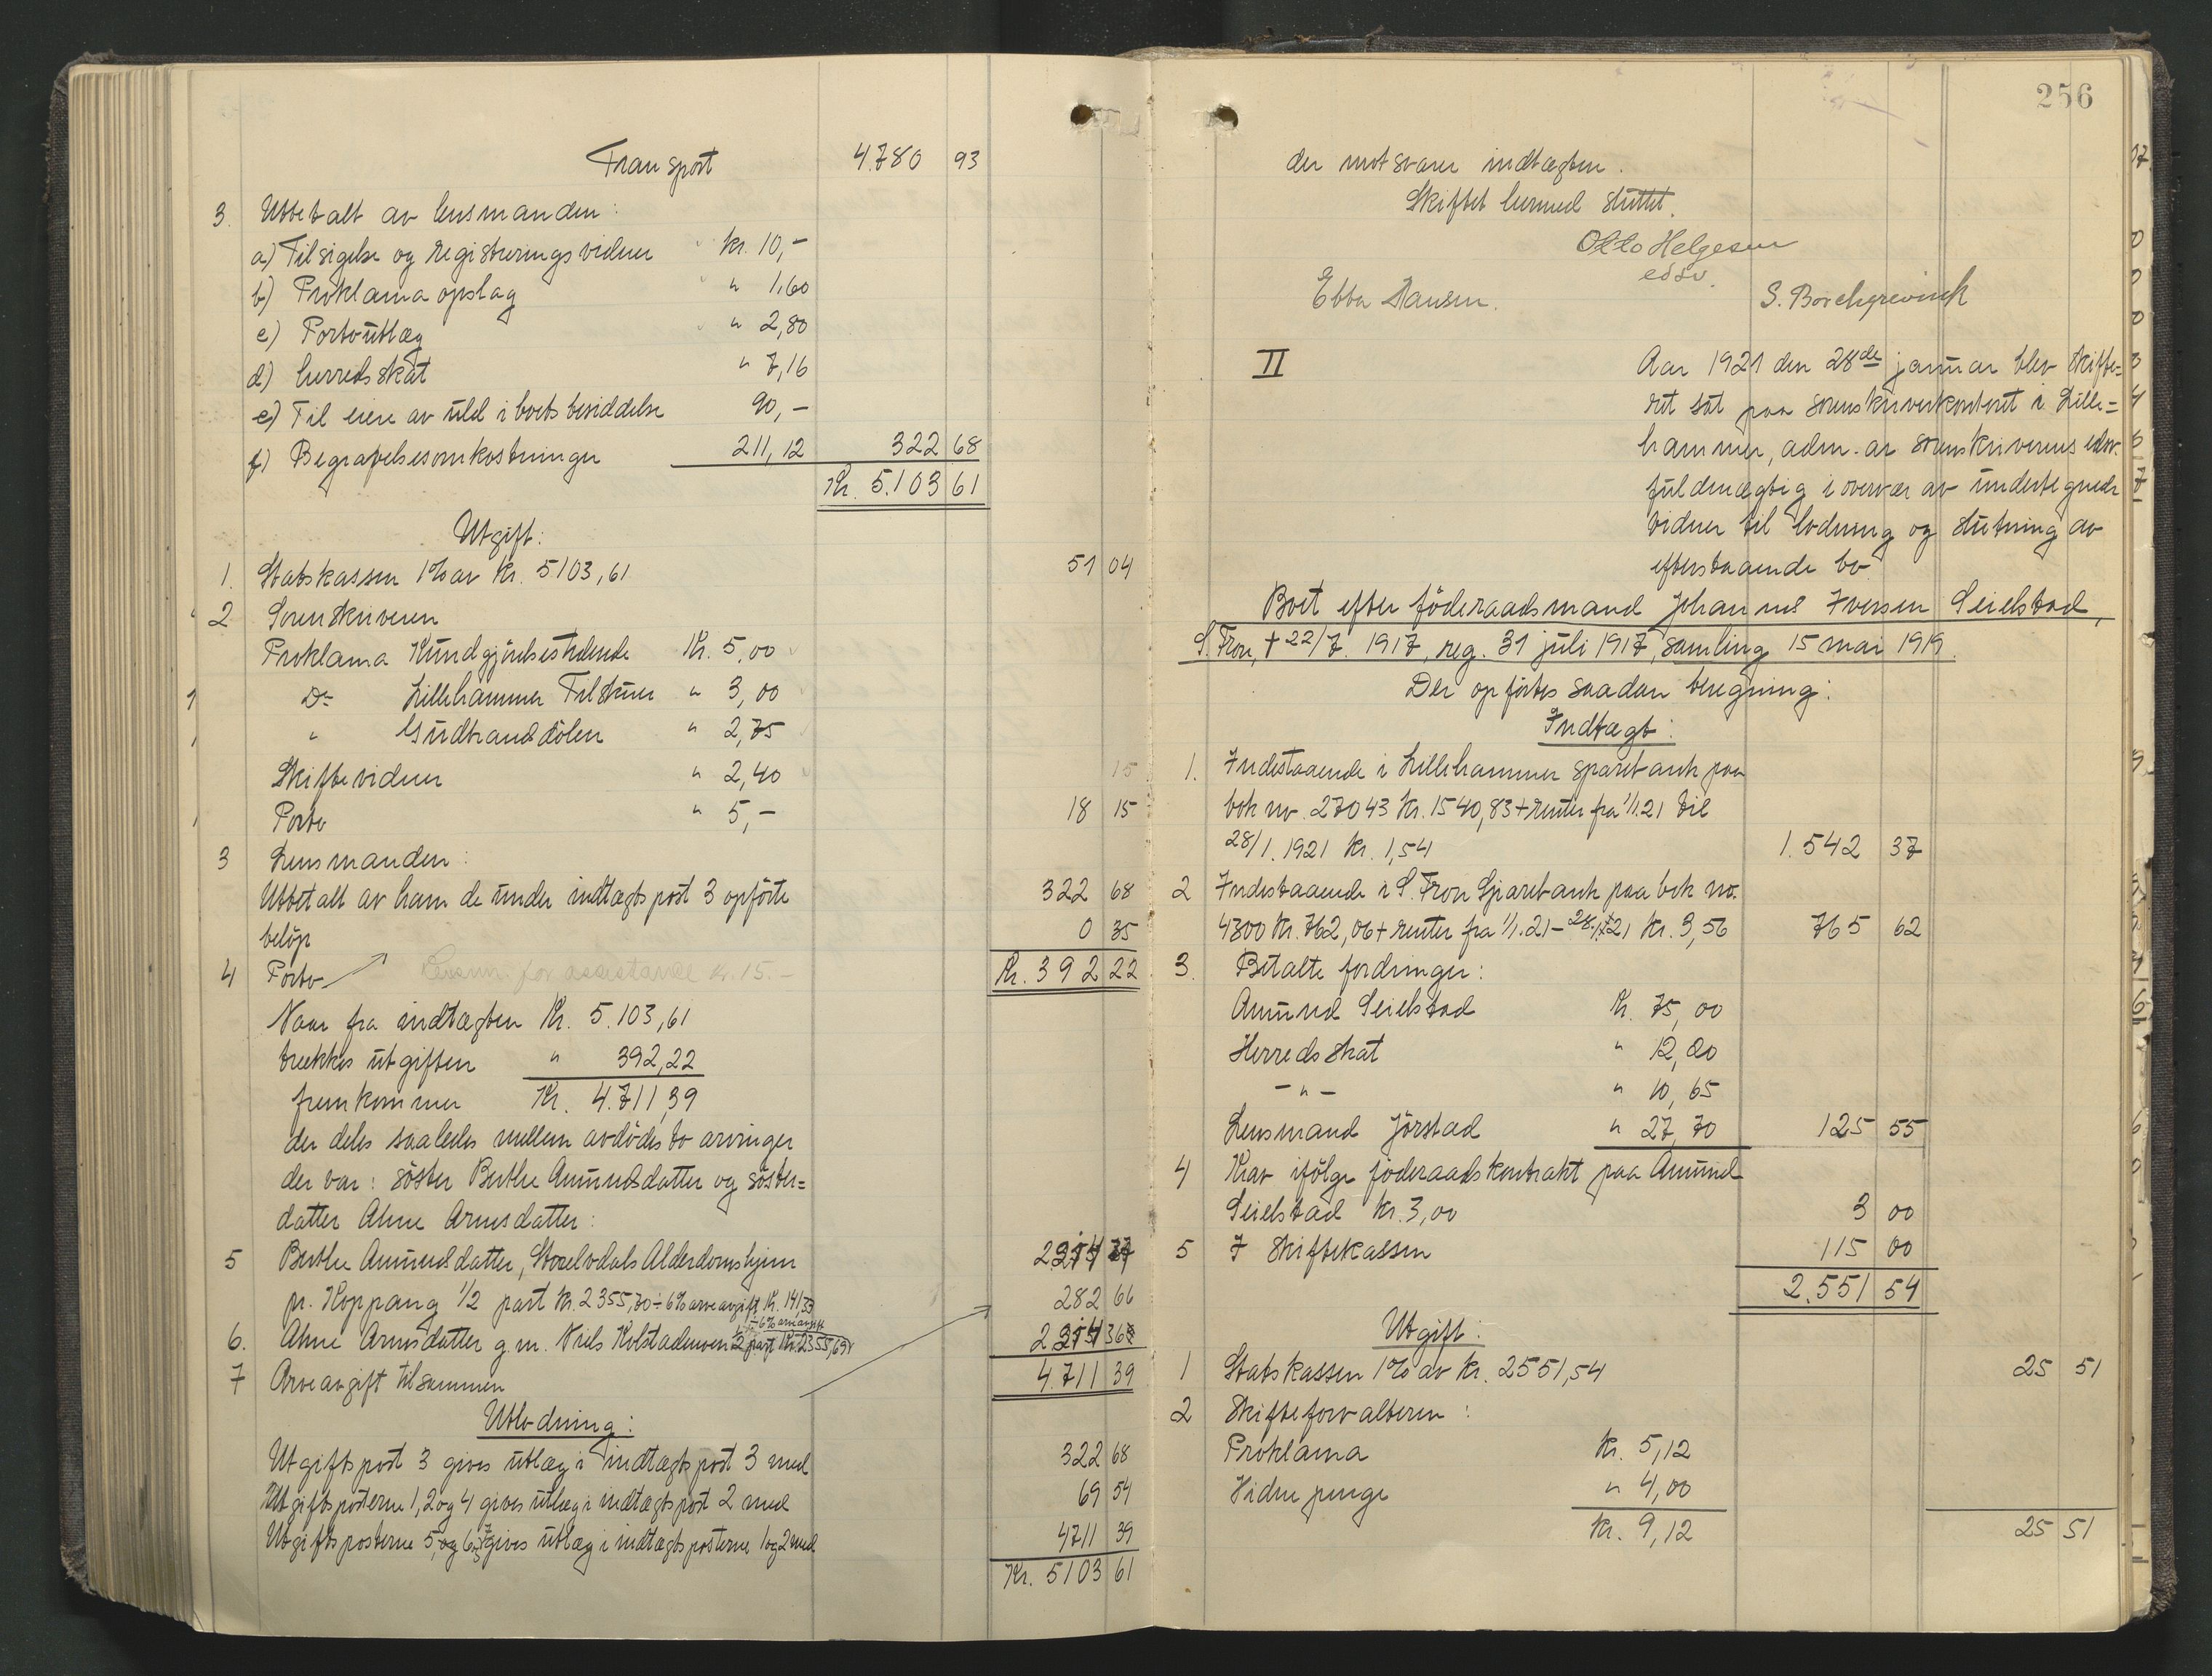 Transport 4.780 93
3. Utbetalt av lensmanden:
a) Tilsigelse og registreringsvidner kr. 10,-
b) Proklama opslag " 1,60
c) Portoutlæg " 2,80
d) herredsskat " 7,16
e) Til eiere av uld i boets besiddelse 90,-
f) Begravelsesomkostninger 211,12 322 68
Kr. 5.103 61
Utgift:
1. Statskassen 1% av Kr. 5103,61 51 04
2 Sorenskriveren
Proklama Kundgjørelsestidende Kr. 5,00
Do Lillehammer Tilskuer " 3,00
" Gudbrandsdølen " 2,75
Skiftevidner " 2,40
15
Porto " 5,- 18 15
3 Lensmanden:
Utbetalt av ham de under indtægtspost 3 opførte 322 68
beløp 0 35
4 Porto Lensm. for assistance kr. 15.-
Kr. 392 22
Naar fra indtægten Kr. 5.103,61
trækkes utgiften " 392,22
fremkommer Kr. 4.711,39
der deles saaledes mellem avdødes to arvinger
der var: søster Berthe Amundsdatter og søster=
datter Ahne Arnesdatter:
5 Berthe Amundsdatter, Storelvdals Alderdomshjem 2214 37
pr. Koppang 1/2 part kr. 2355,70 ÷ 6% arveavgift Kr. 141,33 282 66
÷ 6% arveavgift
6. Ahne Arnesdatter g.m. Nils Kolstadmoen 1/2 part Kr. 2355,69 2214 36
7 Arveavgift tilsammen 4.711 39
Utlodning:
Utgiftspost 3 gives utlæg i indtægtspost 3 med 322 68
Utgiftsposterne 1, 2 og 4 gives utlæg i indtægtspost 2 med 69 54
Utgiftsposterne 5, og 6 og 7 gives utlæg i indtægtsposterne 1 og 2 med 4711 39
Kr. 5103 61
256
der motsvarer indtægten.
Skiftet hermed sluttet.
Otto Helgesen
edsv.
Ebba Hansen. S. Borchgrevink
II Aar 1921 den 28de januar blev skifte=
ret sat paa sorenskriverkontoret i Lille=
hammer, adm. av sorenskriverens edsv.
fuldmægtig i overvær av undertegnede
vidner til lodning og slutning av
efterstaaende bo
Boet efter föderaadsmand Johannes Iversen Seielstad,
S. Fron, † 22/7. 1917, reg. 31 juli 1917, samling 15 mai 1919.
Der opførtes saadan beregning:
Indtægt:
1. Indestaaende i Lillehammer sparebank paa
bok nr. 27043 Kr. 1540,83 + renter fra 1/1.21 til
28/1. 1921 kr. 1,54 1.542 37
2 Indestaaende i S. Fron Sparebank paa bok no.
4300 Kr. 762,06 + renter fra 1/1.21 - 28/1.21 Kr. 3,56 765 62
3. Betalte fordringer:
Amund Seielstad Kr. 75,00
Herredsskat " 12,20
- " - " 10,65
Lensmand Jörstad " 27,70 125 55
4 Krav ifölge föderaadskontrakt paa Amund
Seielstad Kr. 3,00 3 00
5 I Skiftekassen 115 00
2.551 54
Utgift:
1 Statskassen 1% av Kr. 2551,54 25 51
2 Skifteforvalteren:
Proklama Kr. 5,12
Vidnepenge " 4,00
Kr. 9,12 25 51